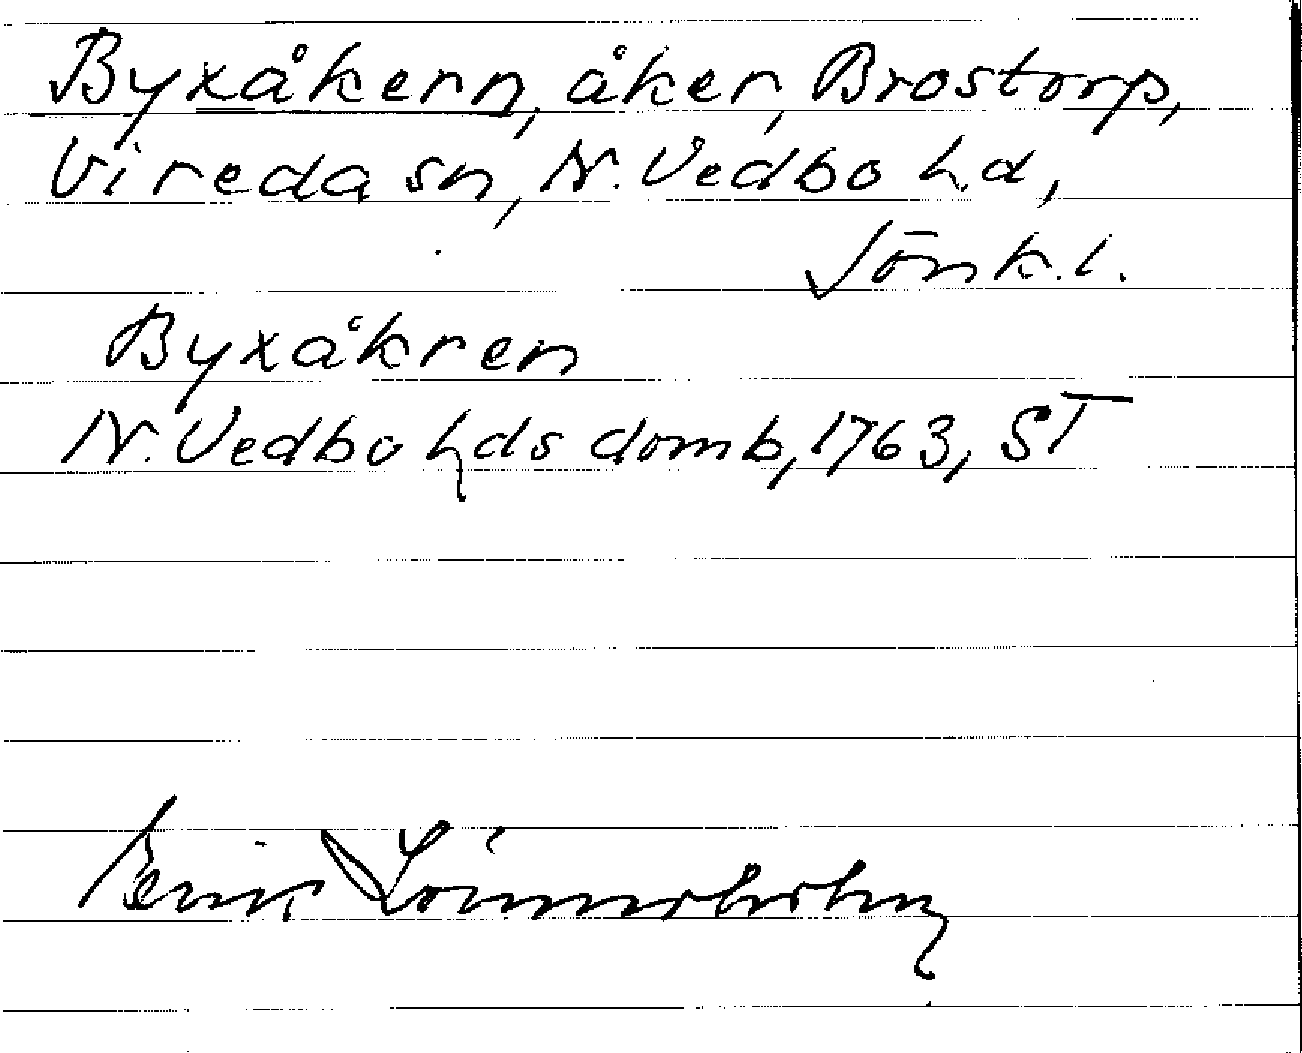 Byxåkern, åker, Brostorp,
Vireda sn, N. Vedbo hd,
Jönk. l.
Byxåkren
N. Vedbo hds domb, 1763, ST